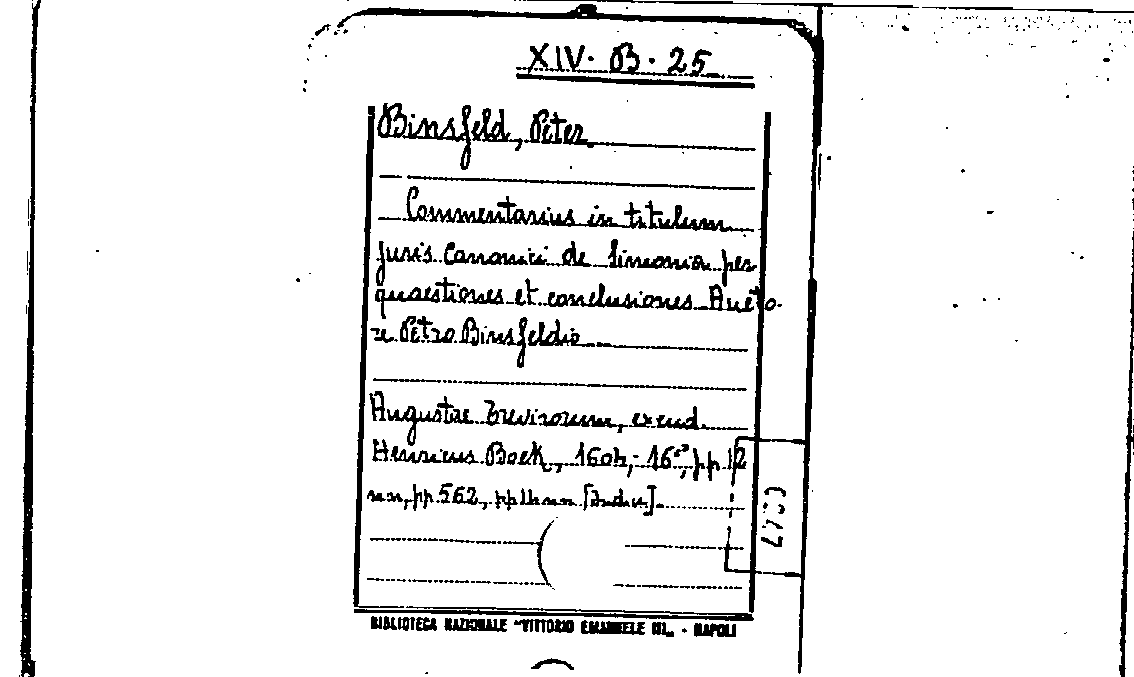 XIV. B. 25
Binsfeld, Peter
Commentarius in titulum
juris canonici de simonia per
quaestiones et conclusiones Aucto-
re Petro Binsfeldio
Augustae Trevirorum, excud.
Henricus Bock, 1604, - 16°, pp 12
nn, pp. 562, pp nn [Index].
BIBLIOTECA NAZIONALE "VITTORIO EMANUELE III" - NAPOLI